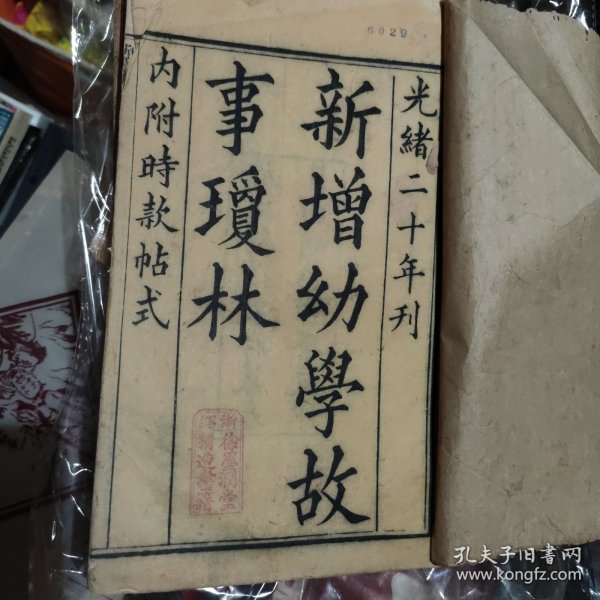 光緒二十年刊
新增幼學故
事瓊林
內附時款帖式
6029
孔夫子旧书网
www.kongfz.com